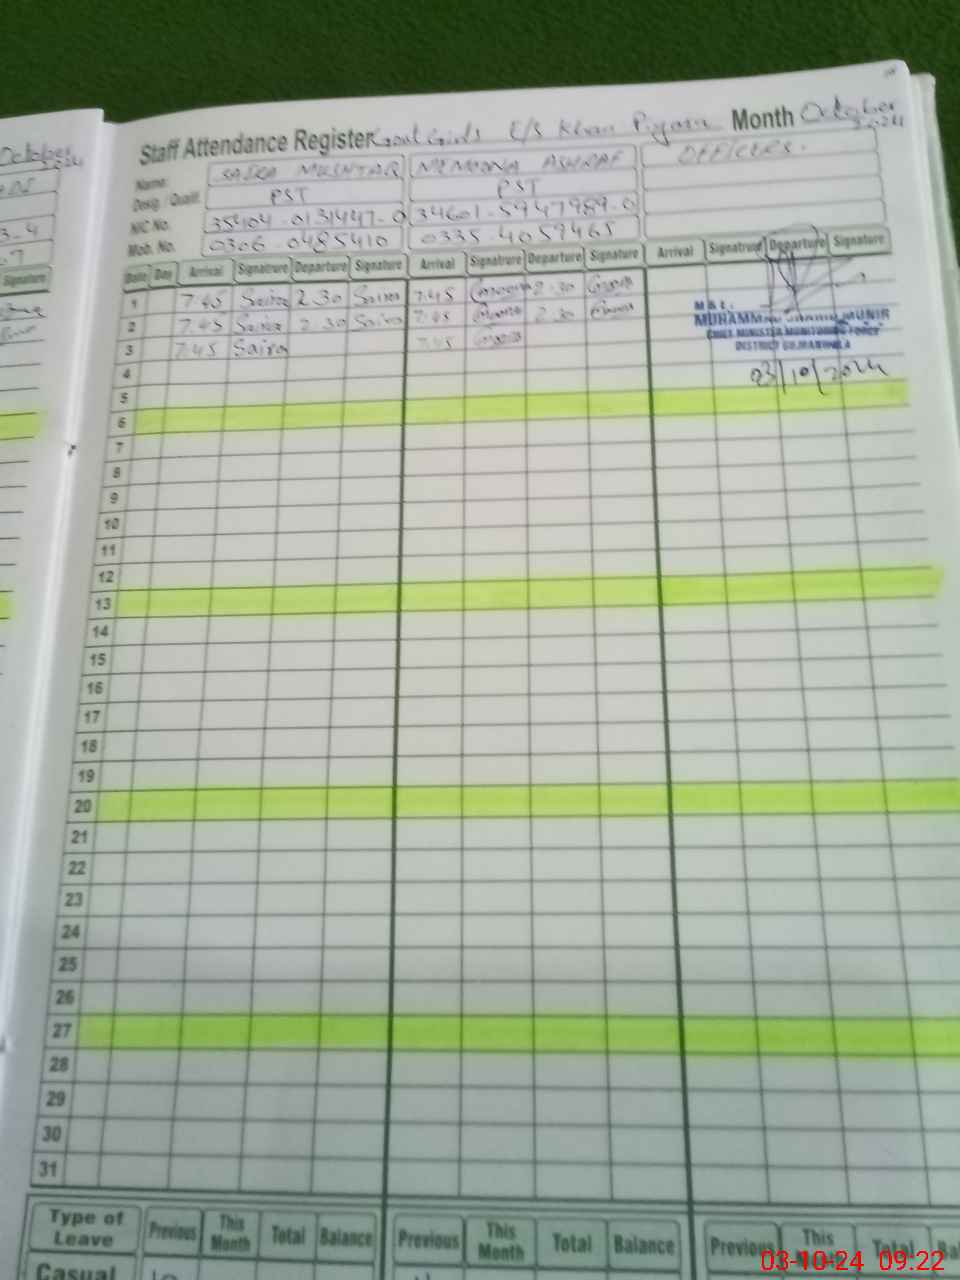 October
Signature
Staff Attendance Register Govt Girls E/S Khan Pyara Month October
2024
Name: SAIRA MUKHTAR NEMONA ASHRAF OFFICERS.
Desig. / Qualif. PST PST
NIC No. 35404-0131447-0 34601-5947989-0
Mob. No. 0306-0485410 0335-4059465
Date Day Arrival Signatrure Departure Signature Arrival Signatrure Departure Signature Arrival Signatrure Departure Signature
1 7.45 Saira 2.30 Saira 7.45 2.30
2 7.45 Saira 2.30 Saira 7.45 2.30
3 7.45 Saira 7.45
MUHAMMAD MUNIR
CHIEF MINISTER MONITORING FORCE
DISTRICT GUJRANWALA
03/10/2024
4
5
6
7
8
9
10
11
12
13
14
15
16
17
18
19
20
21
22
23
24
25
26
27
28
29
30
31
Type of Leave Previous This Month Total Balance Previous This Month Total Balance Previous This Month Total Ba
Casual
03-10-24 09:22